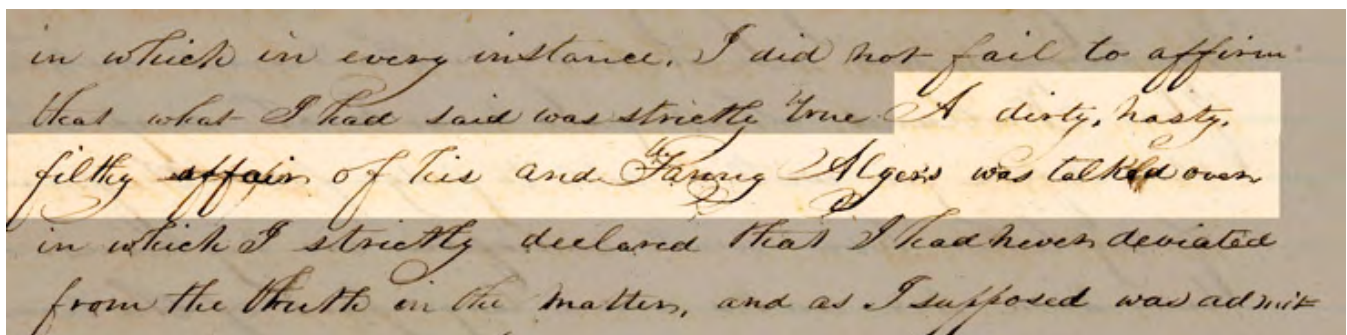 in which in every instance, I did not fail to affirm
that what I had said was strictly true A dirty, nasty,
filthy affair of his and Fanny Algers was talked over
in which I strictly declared that I had never deviated
from the truth in the matter, and as I supposed was admit